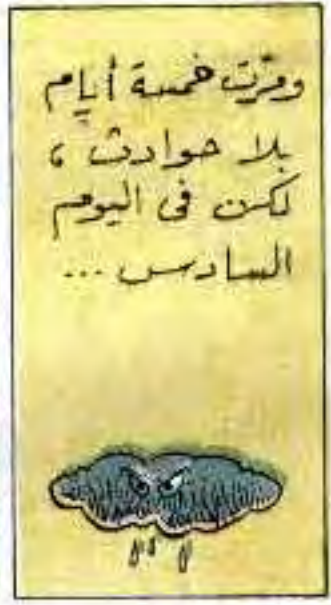 ومرّت خمسة أيام
بلا حوادث ،
لكن فى اليوم
السادس ...